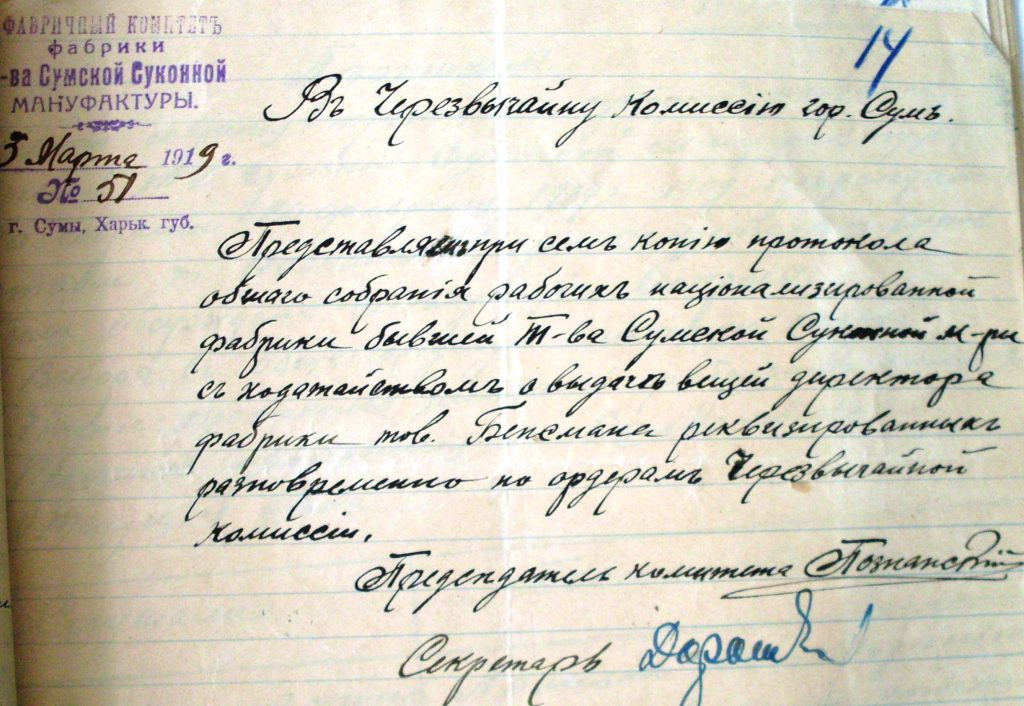 ФАБРИЧНЫЙ КОМИТЕТЪ
фабрики
-ва Сумской Суконной
МАНУФАКТУРЫ.
5 Марта 1919 г.
№ 51
г. Сумы, Харьк. губ.
14
Въ Черезвычайну Комиссію гор. Сумъ.
Представляя при семъ копію протокола
общаго собранія рабочихъ націонализированной
фабрики бывшей Т-ва Сумской Суконной м-ры
съ ходатайствомъ о выдачѣ вещей директора
фабрики тов. Бенсмана реквизированныхъ
разновременно по ордерамъ Черезвычайной
Комиссіи.
Председатель комитета Познанскій
Секретарь